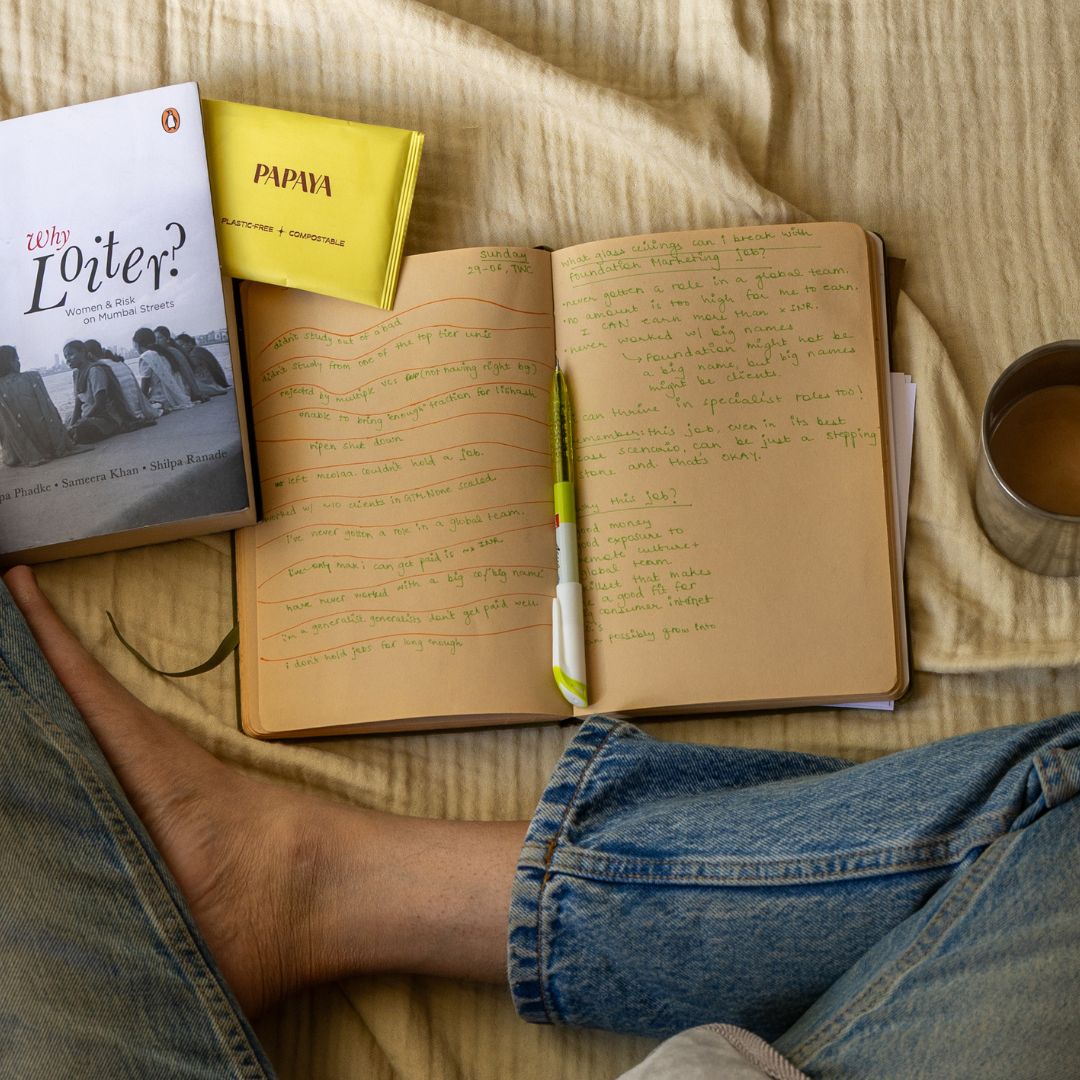 Why
Loiter?
Women & Risk
on Mumbai Streets
pa Phadke • Sameera Khan • Shilpa Ranade
PAPAYA
PLASTIC-FREE + COMPOSTABLE
Sunday
29-06, TWC
didn't study out of abad
didn't study from one of the top tier unis
rejected by multiple VCs (not having right bg)
unable to bring "enough" traction for
ripen shut down
left couldn't hold a job.
worked w/ ~10 clients in GTM. None scaled
i've never gotten a role in a global team.
i've only max i can get paid is INR.
have never worked with a big co/"big name"
i'm a generalist. generalists don't get paid well
i don't hold jobs for long enough
what glass ceilings can i break with
Foundation Marketing job?
• never gotten a role in a global team.
• no amount is too high for me to earn.
I CAN earn more than x INR.
• never worked w/ big names
↳ Foundation might not be
a big name, but big names
might be clients.
can thrive in specialist roles too!
emember: this job, even in its best
case scenario, can be just a stepping
stone and that's OKAY.
why this job?
ood money
ood exposure to
emote culture +
lobal team
killset that makes
e a good fit for
consumer internet
an possibly grow into